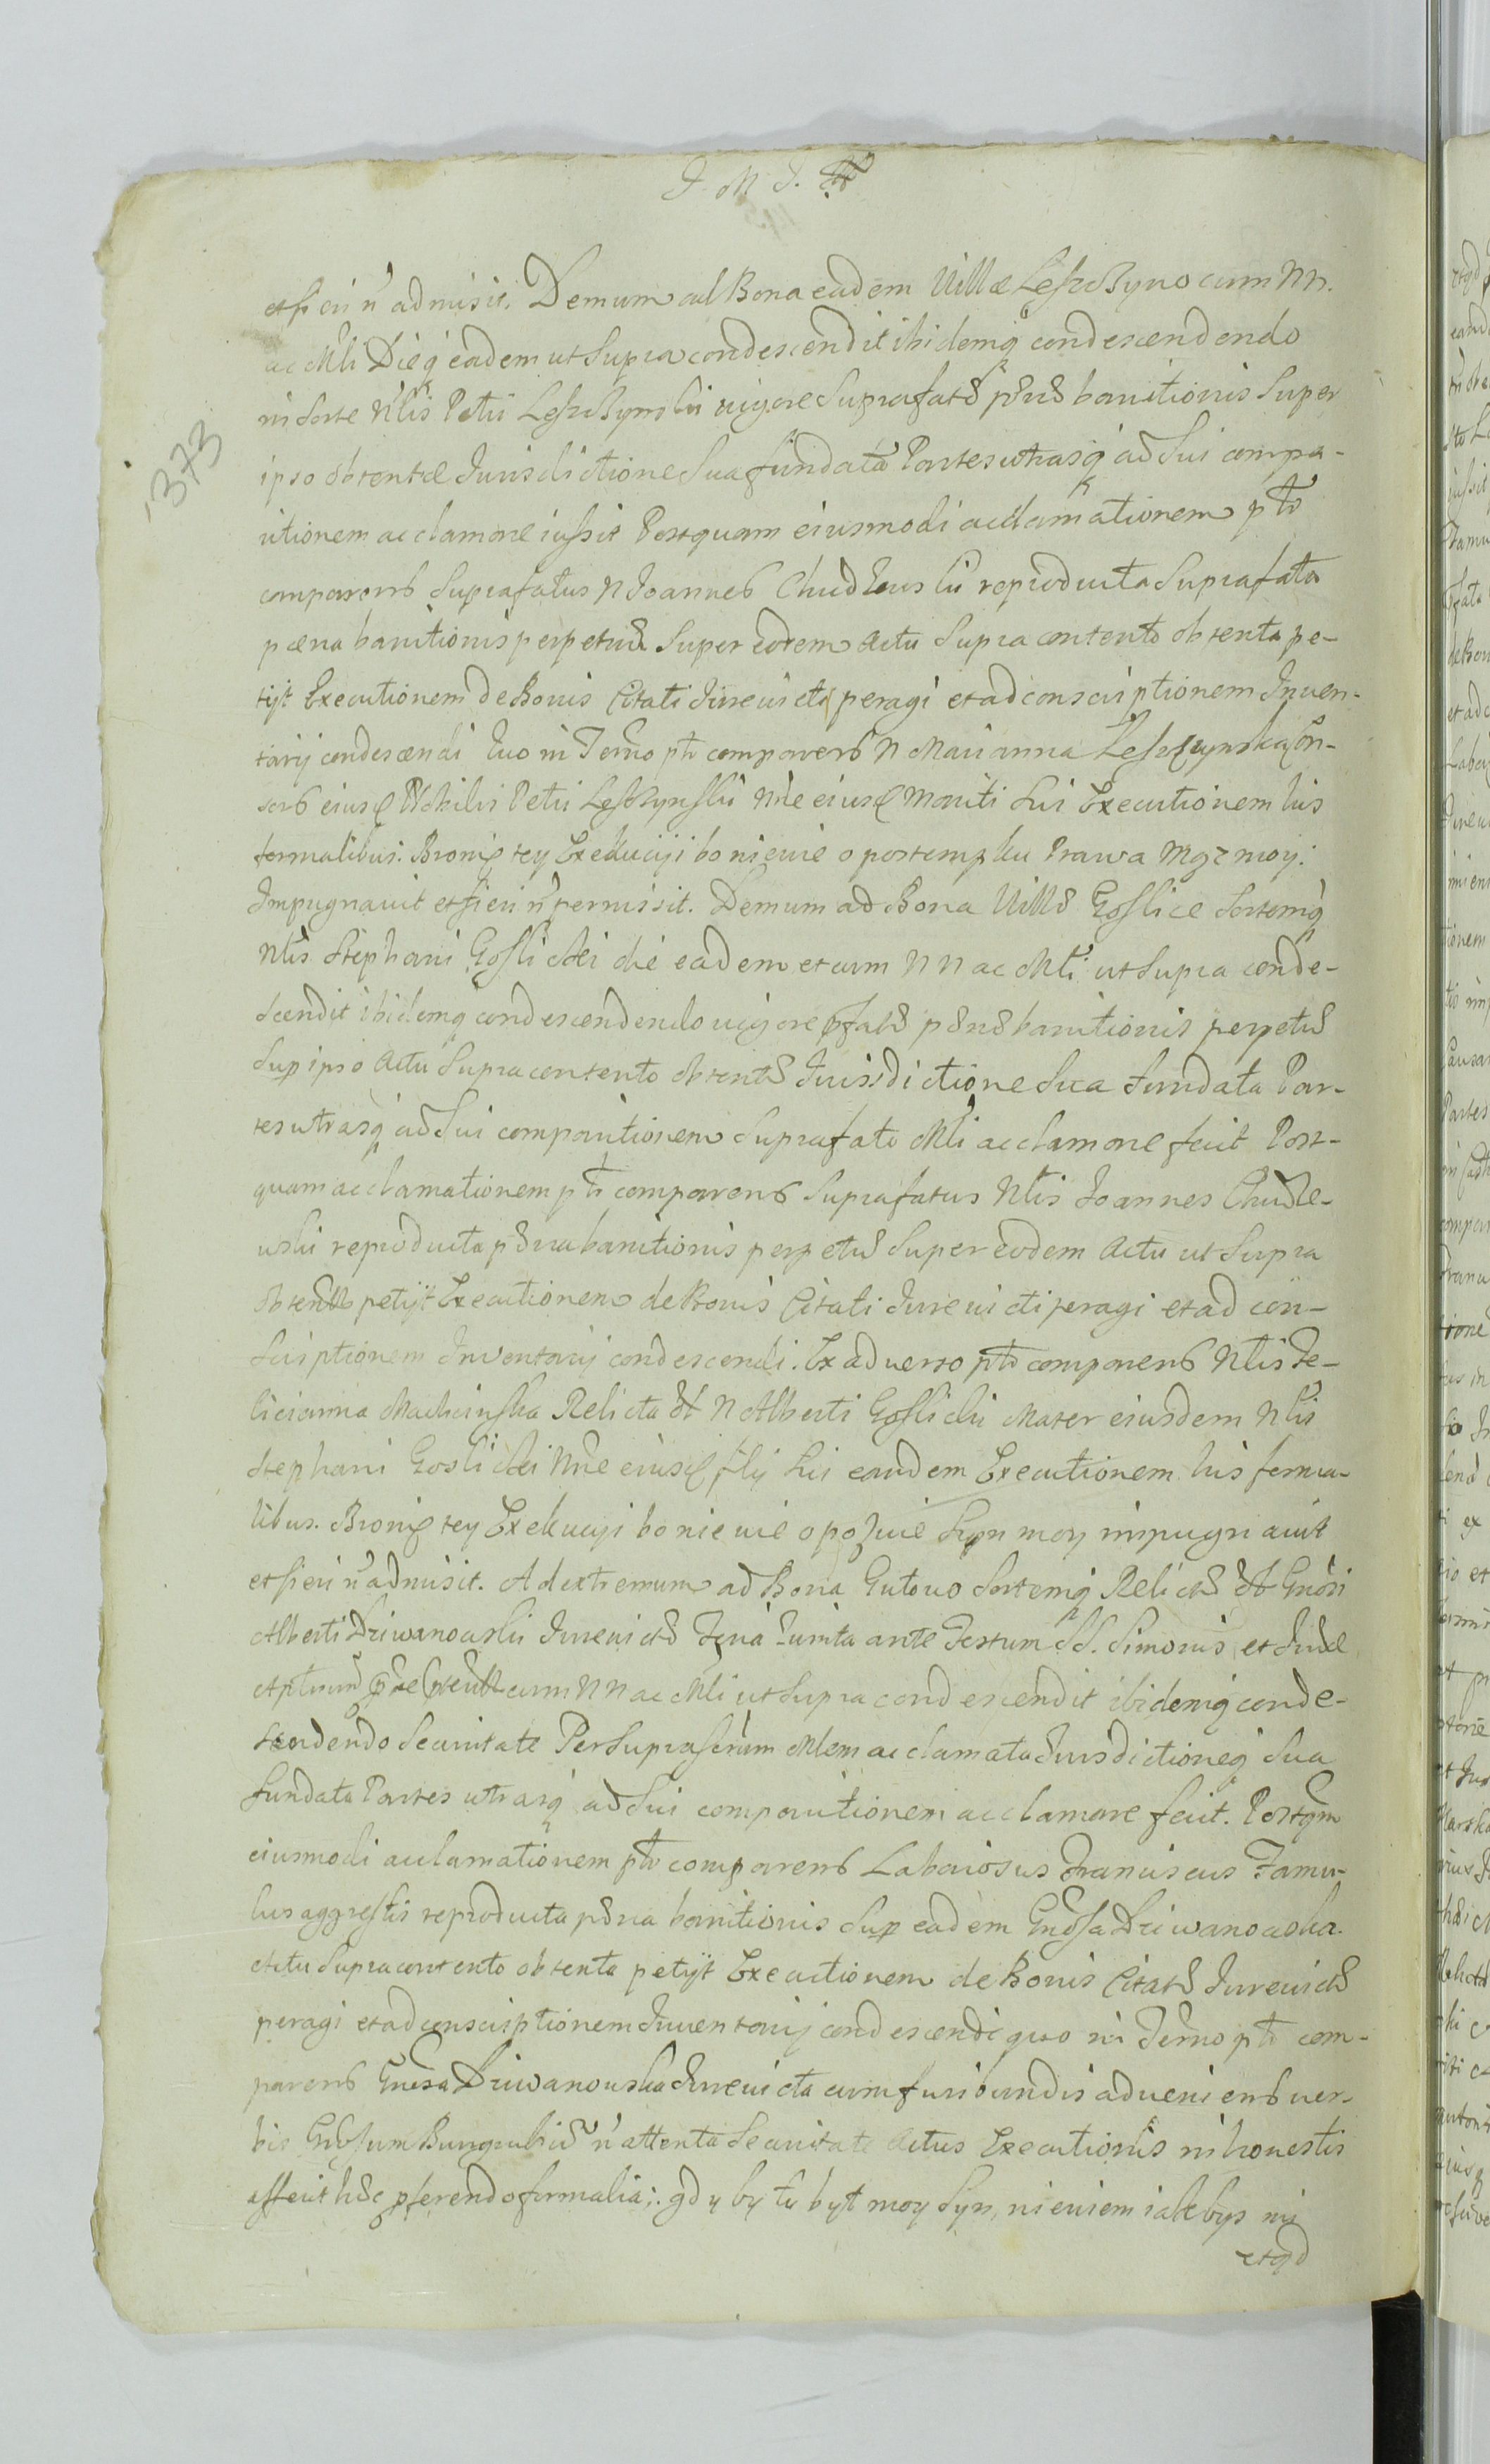 J. M. J.
373
et fieri n̄ admisit. Demum ad Bona eadem Villæ Leszczyno cum NN.
ac Mli Dieq eadem ut Supra condescendit ibidemq condescendendo
in Sorte Nlis Petri Leszczynskii vigore Suprafatæ pænæ banitionis Super
ipso obtentæ Jurisdictione Sua fundata Partes utrasq ad Sui compa-
ritionem acclamare iussit Postquam eiusmodi acclamationem ptr
comparens Suprafatus N Joannes Chudzewskii reproducta Suprafata
pæna banitionis perpetuæ Super eodem Actu Supra contento obtenta pe-
tijt Executionem de Bonis Citati Jurevicti peragi et ad conscriptionem Inven-
tarij condescendi quo in Termo ptr comparens N Marianna Leszczynska Con-
sors eiusd Nobilis Petri Leszczynskii Nne eiusd Mariti Sui Executionem his
formalibus: Bronię tey Exekucyi bo niewie o postempku Prawa Mąż moy:
Impugnavit et fieri n̄ permissit. Demum ad Bona Villæ Goslice Sortemq
Nlis Stephani Goslickii die eadem et cum NN ac Mli ut Supra conde-
scendit ibidemq condescendendo vigore pfatæ pænæ banitionis perpetuæ
Sup ipso Actu Supra contento obtentæ Jurisdictione Sua fundata Par-
tes utrasq ad Sui comparitionem Suprafato Mli acclamare fecit Post-
quam acclamationem ptr comparens Suprafatus Nlis Joannes Chudze-
wskii reproducta pæna banitionis perpetuæ Super eodem Actu ut Supra
petijt Executionem de Bonis Citati Jurevicti peragi et ad con-
scriptionem Inventarij condescendi. Ex adverso ptr comparens Nlis Fe-
licianna Relicta N Alberti Goslickii Mater eiusdem Nlis
Stephani Goslickii Nne eiusd filij Sui eandem Executionem his forma-
libus. Bronię tey Exekucyi bo nie wie o pozwie Syn moy impugnavit
et fieri n̄ admisit. Ad extremum ad Bona Gutowo Sortemq Relictæ Gnosi
Alberti Dziwanowskii Jurevictæ Feria quinta ante Festum SS. Simonis et Judæ
cum NN ac Mli ut Supra condescendit ibidemq conde-
scendendo Securitate Per Suprascrum Mlem acclamata Jurisdictioneq Sua
fundata Partes utrasq ad Sui comparitionem acclamare fecit. Postqm
eiusmodi acclamationem ptr comparens Laboriosus Franciscus Famu-
lus agrestis reproducta pæna banitionis Sup eadem Gnosa Dziwanowska
Actu Supra contento obtenta petijt Executionem de Bonis Citatæ Jurevictæ
peragi et ad conscriptionem Inventarij condescendi quo in Termo ptr com-
parens Gnosa Dziwanowska Jurevicta cum furibundis adveniens ver-
bis Gnosum n̄ attenta Securitate Actus Executionis inhonestis
affecit hæc pferendo formalia: gdy by tu był moy Syn, niewiem iakbys mi